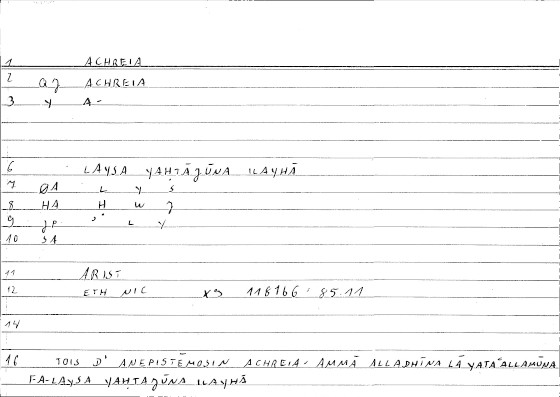 1 ACHREIA
2 QJ ACHREIA
3 Y A-
6 LAYSA YAḤTĀJŪNA ILAYHĀ
7 ØA L Y S
8 HA Ḥ W J
9 JP ʾ L Y
10 SA
11 ARIST
12 ETH NIC X3 118166 : 85.11
14
16 TOIS D' ANEPISTĒMOSIN ACHREIA - AMMĀ ALLADHĪNA LĀ YATAʿALLAMŪNA
FA-LAYSA YAḤTAJŪNA ILAYHĀ